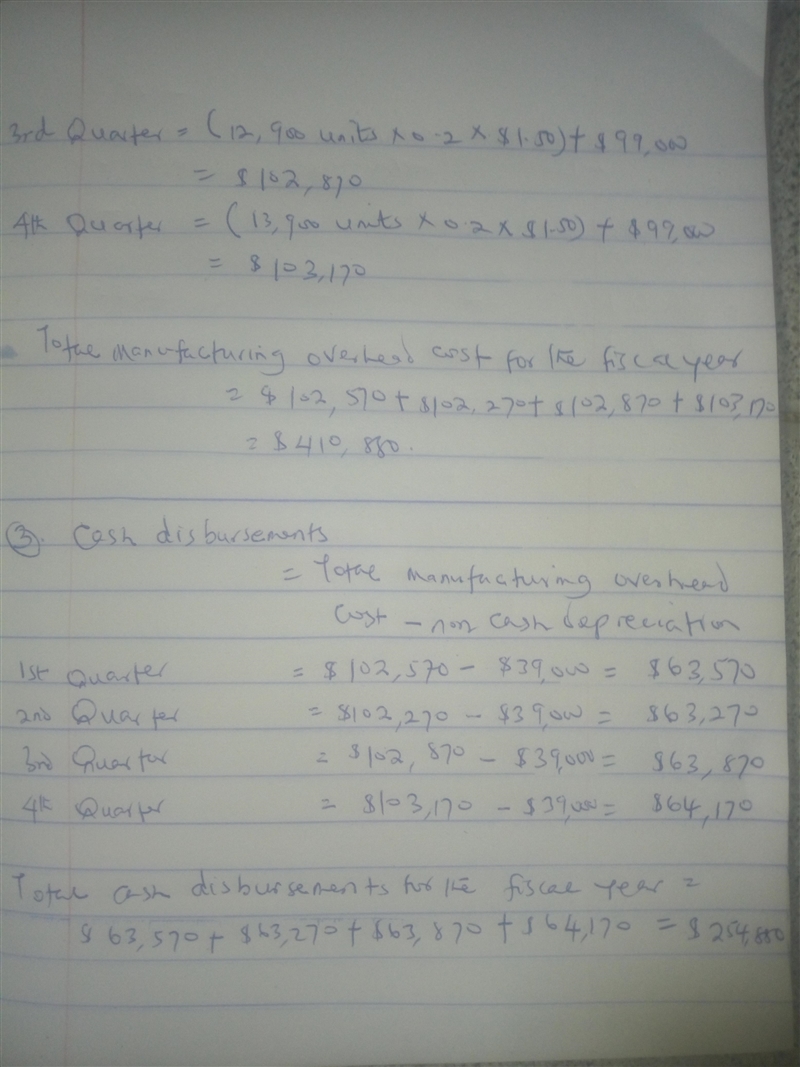 3rd Quarter = (12,900 units x 0.2 x $1.50) + $99,000
= $102,870
4th Quarter = (13,900 units x 0.2 x $1.50) + $99,000
= $103,170
Total manufacturing overhead cost for the fiscal year
= $102,570 + $102,270 + $102,870 + $103,170
= $410,880.
(3). Cash disbursements
= Total manufacturing overhead
Cost - non cash depreciation
1st Quarter = $102,570 - $39,000 = $63,570
2nd Quarter = $102,270 - $39,000 = $63,270
3rd Quarter = $102,870 - $39,000 = $63,870
4th Quarter = $103,170 - $39,000 = $64,170
Total cash disbursements for the fiscal year =
$63,570 + $63,270 + $63,870 + $64,170 = $254,880